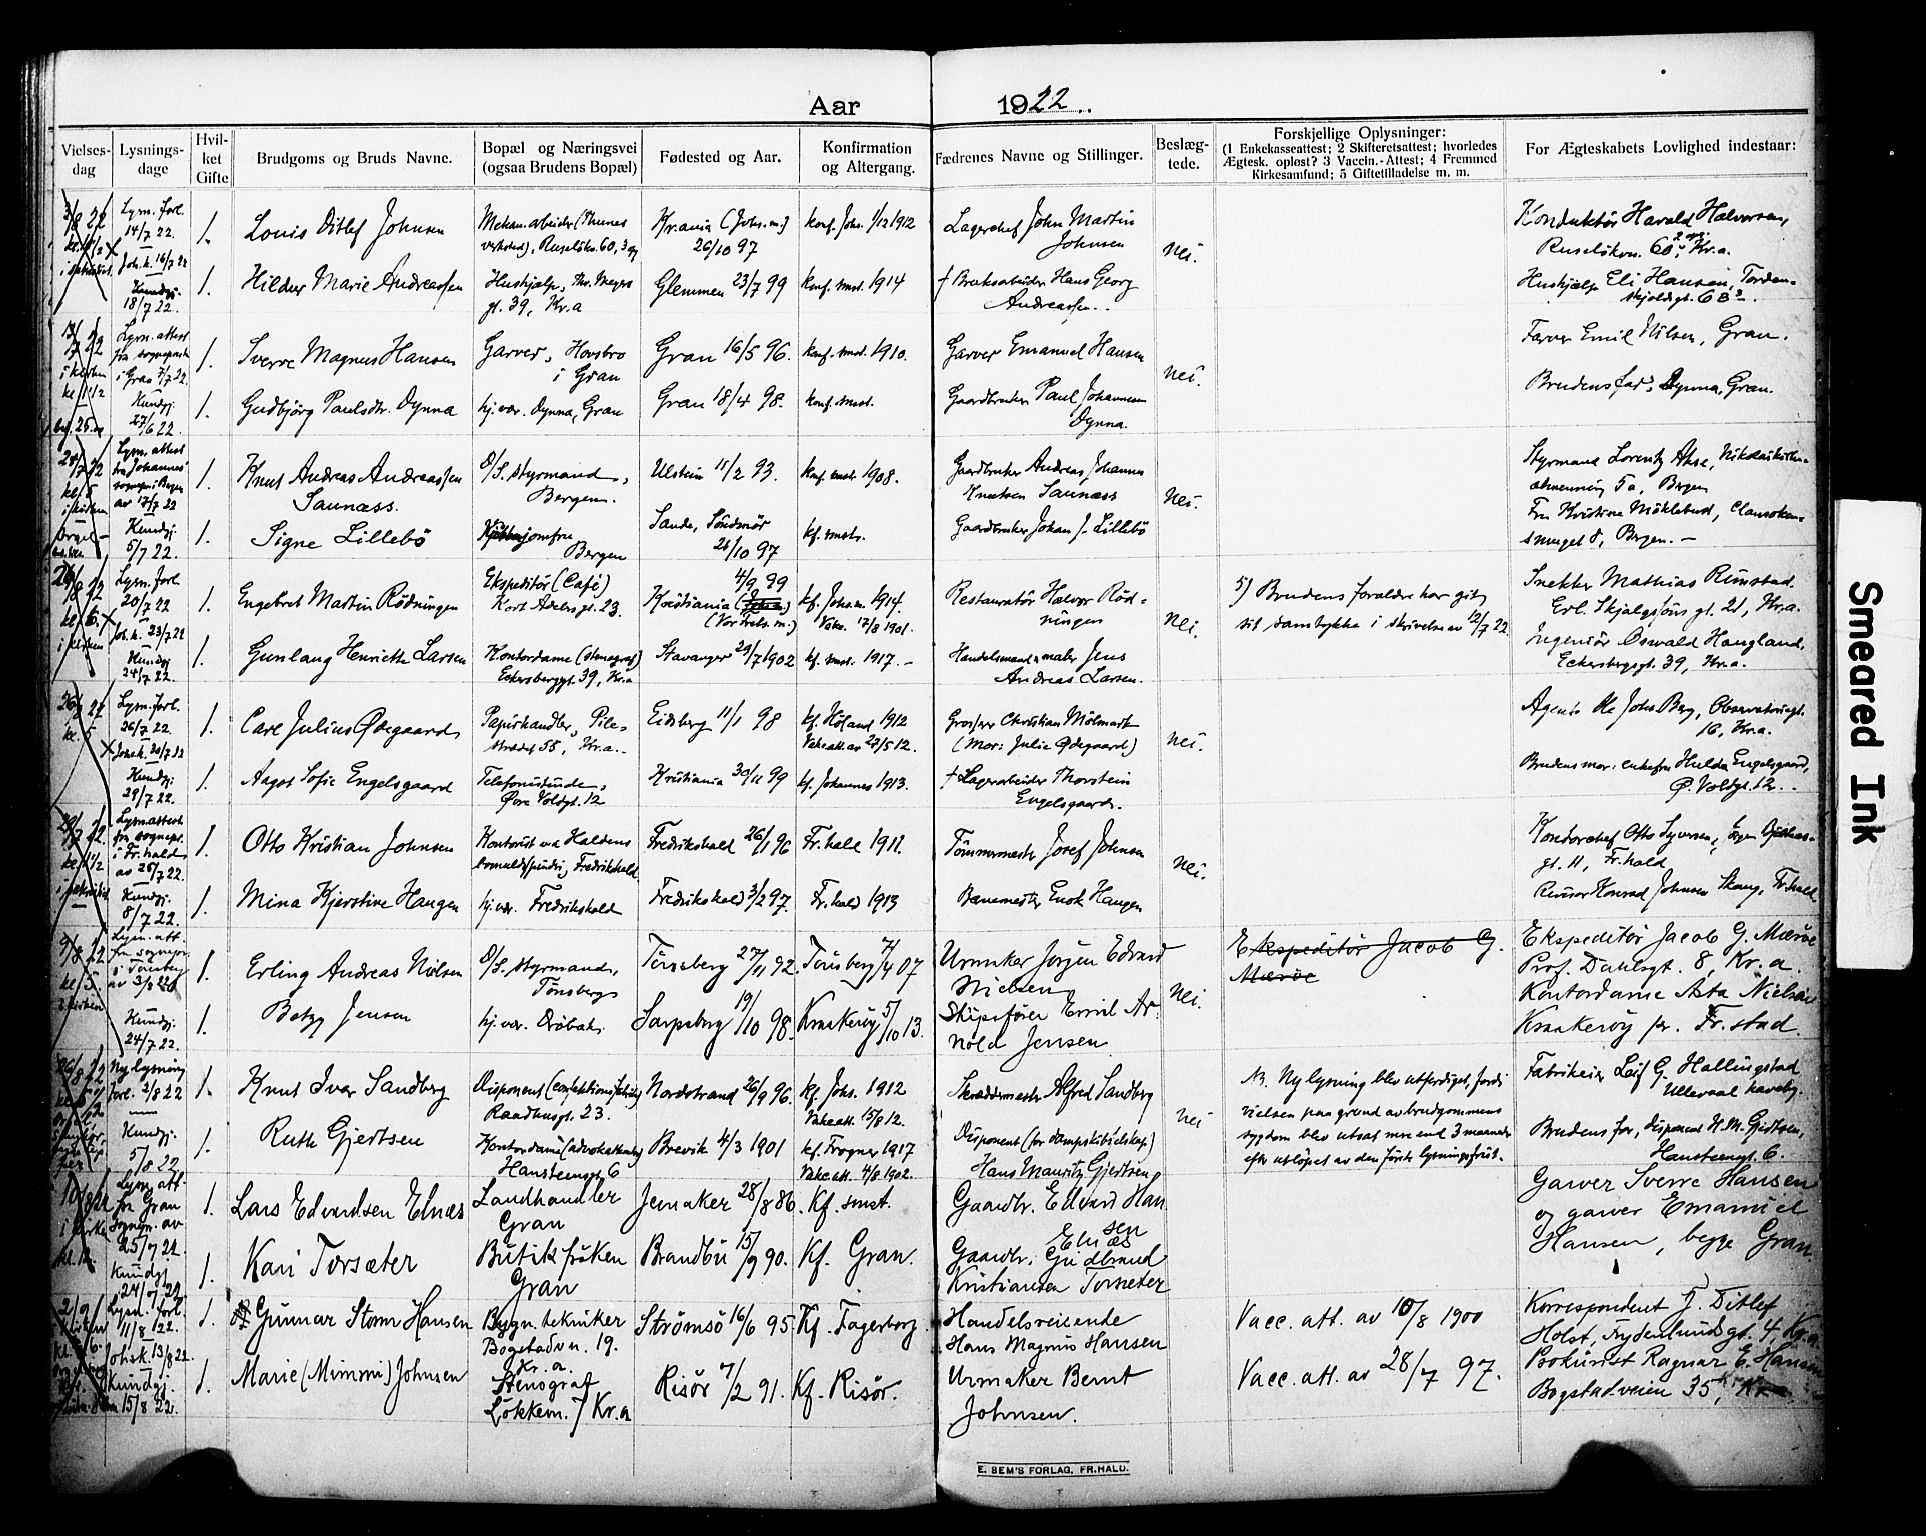 Aar 1922
Vielses-dag
Lysnings-dage
Hvil-ket Gifte
Brudgoms og Bruds Navne.
Bopæl og Næringsvei (ogsaa Brudens Bopæl)
Fødested og Aar.
Konfirmation og Altergang.
Fædrenes Navne og Stillinger.
Beslæg-tede.
Forskjellige Oplysninger:
(1 Enkekasseattest; 2 Skifteretsattest; hvorledes
Ægtesk. opløst? 3 Vaccin.-Attest; 4 Fremmed
Kirkesamfund; 5 Giftetilladelse m. m.
For Ægteskabets Lovlighed indestaar:
3/8 22
Lysn. forl. 14/7 22.
Joh. k. 16/7 22
Kundgj. 18/7 22.
1. Louis Ditlef Johnsen
Mekan. arbeider (Thunes verksted), Ruseløkv. 60, 3 og
Kr.ania (Johs. m.) 26/10 97
Konf. Johs. 1/12 1912
Lagerchef John Martin Johnsen
Nei.
Konduktør Harald Halvorsen, Ruseløkvn. 60, Kr.a.
1. Hildur Marie Andreassen
Hushjælp, Thv. Meyers gt. 39, Kr.a
Glemmen 23/7 99
Konf. smst. 1914
† Bruksarbeider Hans Georg Andreassen.
Hushjælp Eli Hansen, Tordenskjoldsgt. 6B
Lysn. attest fra sogneprest i Gran 7/7 22.
Kundgj. 27/6 22.
1. Sverre Magnus Hansen
Garver, Hovsbro i Gran
Gran 16/5 96.
Konf. smst. 1910.
Garver Emanuel Hansen
Nei.
Farver Emil Nilsen, Gran.
1. Gudbjörg Paulsdtr. Dynna
hj.vær. Dynna, Gran
Gran 18/4 98.
Konf. smst.
Gaardbruker Paul Johannesen Dynna.
Brudens far, Dynna, Gran.
24/7 22 kl. 5 i kirken
Lysn. attest fra Johannes sogn i Bergen av 17/7 22
Kundgj. 5/7 22.
1. Knut Andreas Andreassen Saunæss.
D/S. styrmand, Bergen.
Ulstein 11/2 93.
Konf. smst. 1908.
Gaardbruker Andreas Johannes Knutsen Saunæss
Nei.
Styrmand Lorentz Aase, Nikolaikirkealmenning 5a, Bergen
1. Signe Lillebö
jomfru Bergen
Sande, Söndmör 21/10 97
kf. smst.
Gaardbruker Johan J. Lillebö
Fru Kristine Möklebust, smuget 8, Bergen. –
Lysn. forl. 20/7 22
Joh. k. 23/7 22
Kundgj. 24/7 22.
1. Engebret Martin Rödningen
Ekspeditör (Café) Kort Adelers gt. 23.
4/9 99 Kristiania (Vor Frels. m.)
kf. Johs. m. 1914. Vaks. 17/8 1901.
Restauratör Halvor Rödningen
Nei.
5) Brudens forælder har git sit samtykke i skrivelse av 12/7 22
Snekker Mathias Rimstad. Erl. Skjalgssöns gt. 21, Kr.a.
1. Gunlaug Henriette Larsen
Kontordame (stenograf) Eckersbergsgt. 39, Kr.a
Stavanger 29/7 1902
kf. smst. 1917. –
Handelsmand & maler Jens Andreas Larsen.
Ingeniör Oswald Haugland, Eckersbergsgt. 39, Kr.a.
Lysn. forl. 26/7 22.
Joh. k. 30/7 22
Kundgj. 29/7 22.
1. Carl Julius Ødegaard
Papirhandler, Pilestrædet 55, Kr.a. –
Eidsberg 11/1 98
kf. Höland 1912 Vakc. att av 27/5 12.
Grosserer Christian Mölmark (Mor: Julie Ødegaard)
Nei.
Agent Ole Johs Berg, Observatoriegt. 16, Kr.a.
1. Aagot Sofie Engelsgaard
Telefonistinde, Övre Voldgt. 12
Kristiania 30/11 99
kf. Johannes 1913.
† Lagerarbeider Thorstein Engelsgaard.
Brudens mor: enkefru Hulda Engelsgaard, Ø. Voldgt. 12.
Lysn. attest fra sognepr. i Fr.hald av 26/7 22.
Kundgj. 8/7 22.
1. Otto Kristian Johnsen
Kontorist v. Haldens bomuldsspinderi, Fredrikshald.
Fredrikshald 26/1 96
Fr. hald 1911.
Tömmermester Josef Johnsen
Nei.
Kontorchef Otto Syversen, gt. 11, Fr.hald
1. Mina Kjerstine Haugen
hj. vær. Fredrikshald
Fredrikshald 3/2 97.
Fr. hald 1913
Banemester Enok Haugen
Revisor Konrad Johnsen Skaug, Fr.hald
9/8 22. kl. 5. i kirken
Lysn. att. fra sognepr. i Tönsberg av 3/8 22
Kundgj. 24/7 22.
1. Erling Andreas Nielsen
D/S. styrmand, Tønsberg
Tönsberg 27/11 92.
Tönsberg 7/4 07
Urmaker Jörgen Edvard Nielsen
Nei.
Ekspeditör Jacob G. Mærøe
Ekspeditör Jacob G. Mærøe Prof. Dahlsgt. 8, Kr.a.
1. Betzy Jensen
hj. vær. Dröbak.
Sarpsborg 19/10 98.
Kraakeröy 5/10 13.
Skipsförer Emil Arnold Jensen
Kontordame Asta Nielsen Kraakeröy pr. Fr.stad.
26/8 22
Ny lysning forl. 2/8 22
Kundgj. 5/8 22
1. Knut Ivar Sandberg
Disponent Raadhusgt. 23.
Nordstrand 26/9 96.
kf. Johs. 1912 Vakc att. 15/8 12.
Skræddermester Alfred Sandberg
Nei
Ny lysning blev utferdiget, fordi vielsen paa grund av brudgommens sygdom blev utsat mere end 3 maaneder efter utlöpet av den förste lysningsfrist.
Fabrikeier Leif G. Hallingstad Ullevaal haveby.
1. Ruth Gjertsen
Kontordame Hansteensgt 6
Brevik 4/3 1901
kf. Frogner 1917 Vakc att. 4/8 1902.
Disponent (for dampskibsselskap) Hans Mauritz Gjertsen
Brudens far, disponent H. M. Gjertsen, Hansteensgt. 6.
10/8 22 i kirken kl. 12.
Lysn. att. fra Gran sognepr. av 25/7 22.
Kundgj. 24/7 22
1. Lars Edvardsen Elnæs
Landhandler Gran
Jevnaker 28/8 86.
Kf. smst.
Gaardbr. Edvard Hansen Elnæs
Garver Sverre Hansen og garver Emanuel Hansen, begge Gran.
1. Kari Torsæter
Butikfröken Gran
Brandbu 15/9 90.
Kf. Gran.
Gaardbr. Gudbrand Kristiansen Torsæter
2/9 22
Lysn. forl. 11/8 22.
Joh. k. 13/8 22.
Kundgj. 15/8 22.
1. Gunnar Storm Hansen
Bygn. tekniker Bogstadvn. 19. Kr.a.
Strömsö 16/6 95.
Kf. Fagerborg.
Handelsreisende Hans Magnus Hansen
Vacc. att. av 10/8 1900
Korrespondent J. Ditlef Holst, Frydenlundsgt. 4, Kr.a
1. Marie (Mimmi) Johnsen
Stenograf Lökkevn. 7 Kr.a
Risör 7/2 91.
Kf. Risör.
Urmaker Bernt Johnsen.
Vacc. att. av 28/7 97.
Ragnar E. Hansen Bogstadveien 35, Kr.a
E. SEM'S FORLAG, FR.HALD.
Smeared Ink